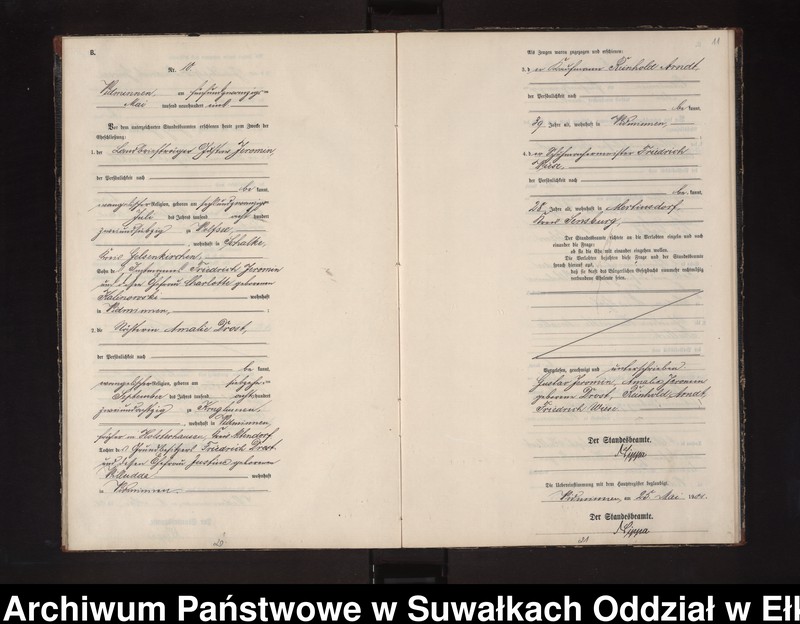 8.
Nr. 10.
Widminnen, am fünfundzwanzigs-
Mai tausend neunhundert und
Vor dem unterzeichneten Standesbeamten erschienen heute zum Zwecke der
Eheschließung:
1. der Gustav Jeromin,
der Persönlichkeit nach
be kannt,
evangelischer Religion, geboren am
Juli des Jahres tausend acht hundert
zweiundsiebzig in
, wohnhaft in Schalke,
Kreis Gelsenkirchen,
Sohn des Friedrich Jeromin
und dessen Ehefrau Charlotte geborenen
Kalinowski wohnhaft
in Widminnen, ;
2. die Amalie Drost,
der Persönlichkeit nach
be kannt,
evangelischer Religion, geboren am
September des Jahres tausend achthundert
zweiundachtzig in
, wohnhaft in Widminnen,
früher in
Tochter des Grundbesitzers Friedrich Drost
und dessen Ehefrau Justine geborenen
wohnhaft
in Widminnen
20
11
Als Zeugen waren zugezogen und erschienen:
3. d er Kaufmann Reinhold Arndt,
der Persönlichkeit nach
be kannt,
39 Jahre alt, wohnhaft in Widminnen,
;
4. d er Friedrich
Wiese,
der Persönlichkeit nach
be kannt,
28 Jahre alt, wohnhaft in Mertinsdorf,
Kreis Sensburg,
Der Standesbeamte richtete an die Verlobten einzeln und nach
einander die Frage:
ob sie die Ehe mit einander eingehen wollen.
Die Verlobten bejahten diese Frage und der Standesbeamte
sprach hierauf aus,
daß sie kraft des Bürgerlichen Gesetzbuchs nunmehr rechtmäßig
verbundene Eheleute seien.
Vorgelesen, genehmigt und unterschrieben
Gustav Jeromin, Amalie Jeromin
geborene Drost, Reinhold Arndt,
Friedrich Wiese
Der Standesbeamte.
Lippa
Die Uebereinstimmung mit dem Hauptregister beglaubigt.
Widminnen, am 25. Mai
Der Standesbeamte.
Lippa
21
Archiwum Państwowe w Suwałkach Oddział w Ełk